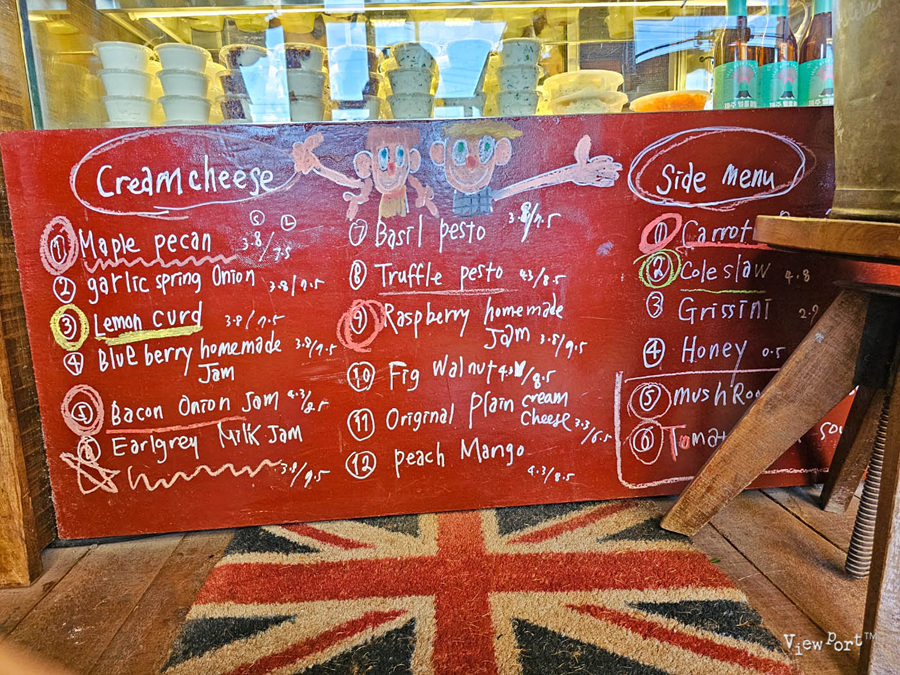 Creamcheese
S L
1 Maple pecan 3.8/7.5
2 garlic spring Onion 3.8/7.5
3 Lemon curd 3.8/7.5
4 Blueberry homemade
Jam 3.8/7.5
5 Bacon Onion Jam 4.3/8.5
6 Earlgrey Milk Jam
3.8/7.5
7 Basil pesto 3.8/7.5
8 Truffle pesto 4.3/8.5
9 Raspberry homemade
Jam 3.8/7.5
10 Fig Walnut 4.3/8.5
11 Original plain cream
cheese 3.3/6.5
12 peach Mango
4.3/8.5
Side Menu
1 Carrot
2 Cole slaw 4.8
3 Grissini
4 Honey 0.5
5 mushRoo
6 Tomat
View Port™